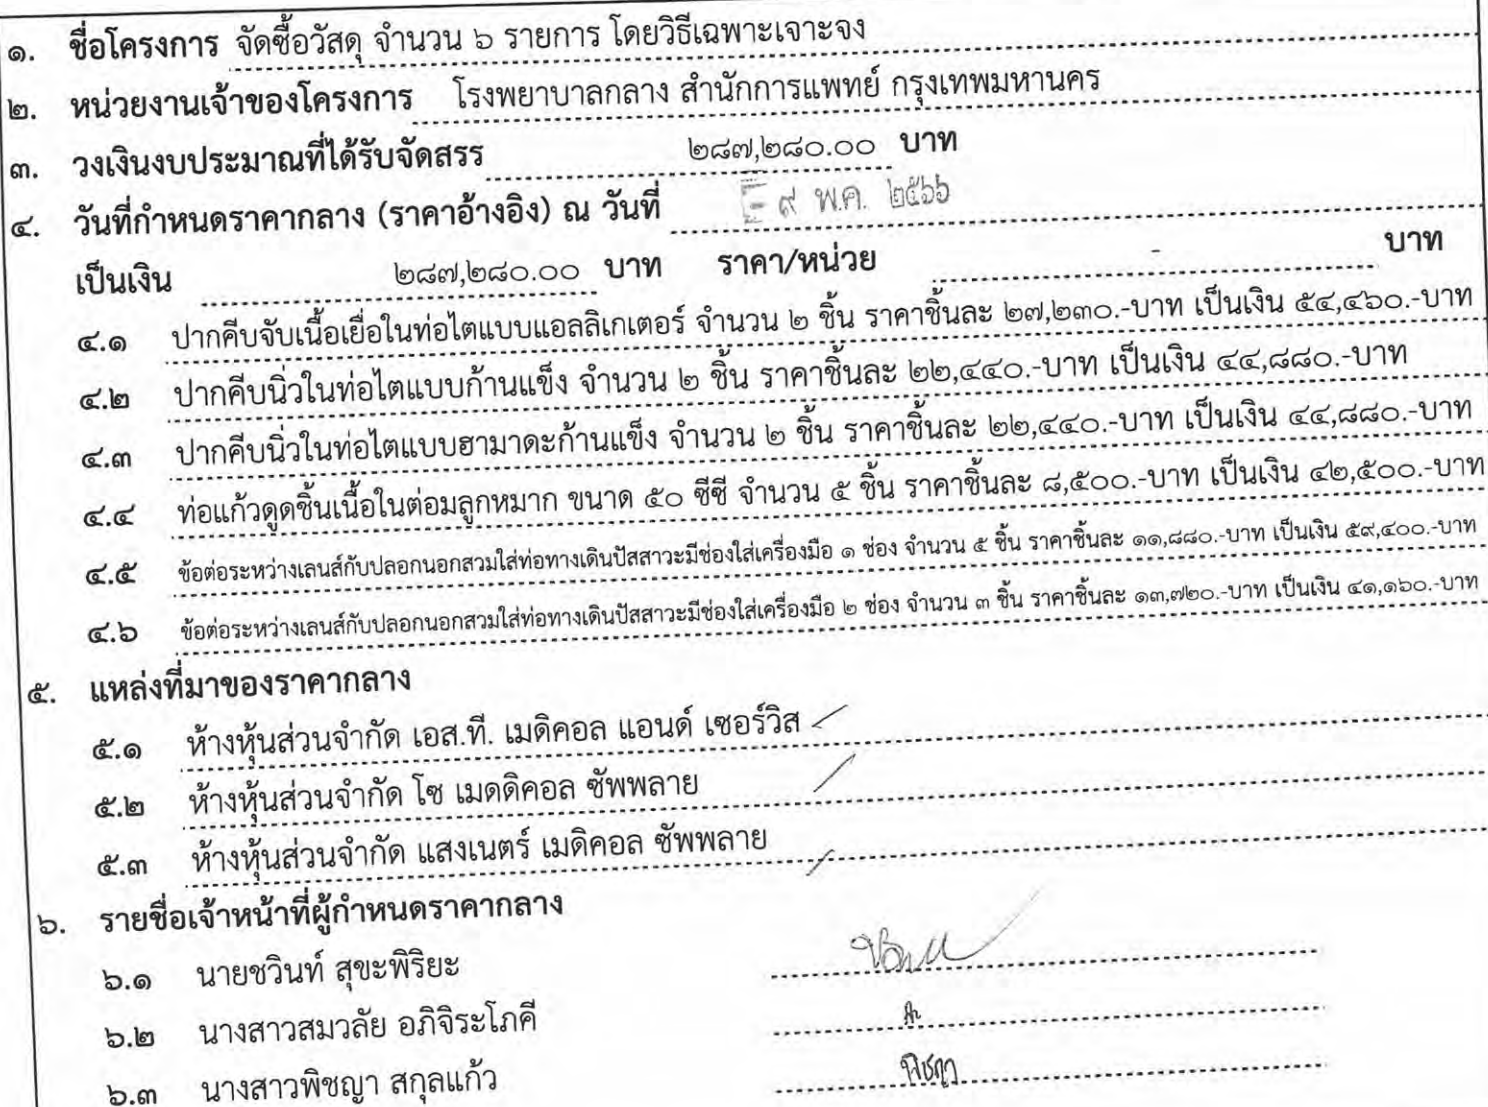 ๑. ชื่อโครงการ จัดซื้อวัสดุ จำนวน ๖ รายการ โดยวิธีเฉพาะเจาะจง
๒. หน่วยงานเจ้าของโครงการ โรงพยาบาลกลาง สำนักการแพทย์ กรุงเทพมหานคร
๓. วงเงินงบประมาณที่ได้รับจัดสรร ๒๘๗,๒๘๐.๐๐ บาท
๔. วันที่กำหนดราคากลาง (ราคาอ้างอิง) ณ วันที่ ๙ พ.ค. ๒๕๖๖
เป็นเงิน ๒๘๗,๒๘๐.๐๐ บาท ราคา/หน่วย - บาท
๔.๑ ปากคีบจับเนื้อเยื่อในท่อไตแบบแอลลิเกเตอร์ จำนวน ๒ ชิ้น ราคาชิ้นละ ๒๗,๒๓๐.-บาท เป็นเงิน ๕๔,๔๖๐.-บาท
๔.๒ ปากคีบนิ่วในท่อไตแบบก้านแข็ง จำนวน ๒ ชิ้น ราคาชิ้นละ ๒๒,๔๔๐.-บาท เป็นเงิน ๔๔,๘๘๐.-บาท
๔.๓ ปากคีบนิ่วในท่อไตแบบฮามาดะก้านแข็ง จำนวน ๒ ชิ้น ราคาชิ้นละ ๒๒,๔๔๐.-บาท เป็นเงิน ๔๔,๘๘๐.-บาท
๔.๔ ท่อแก้วดูดชิ้นเนื้อในต่อมลูกหมาก ขนาด ๕๐ ซีซี จำนวน ๕ ชิ้น ราคาชิ้นละ ๘,๕๐๐.-บาท เป็นเงิน ๔๒,๕๐๐.-บาท
๔.๕ ข้อต่อระหว่างเลนส์กับปลอกนอกสวมใส่ท่อทางเดินปัสสาวะมีช่องใส่เครื่องมือ ๑ ช่อง จำนวน ๕ ชิ้น ราคาชิ้นละ ๑๑,๘๘๐.-บาท เป็นเงิน ๕๙,๔๐๐.-บาท
๔.๖ ข้อต่อระหว่างเลนส์กับปลอกนอกสวมใส่ท่อทางเดินปัสสาวะมีช่องใส่เครื่องมือ ๒ ช่อง จำนวน ๓ ชิ้น ราคาชิ้นละ ๑๓,๗๒๐.-บาท เป็นเงิน ๔๑,๑๖๐.-บาท
๕. แหล่งที่มาของราคากลาง
๕.๑ ห้างหุ้นส่วนจำกัด เอส.ที. เมดิคอล แอนด์ เซอร์วิส
๕.๒ ห้างหุ้นส่วนจำกัด โซ เมดดิคอล ซัพพลาย
๕.๓ ห้างหุ้นส่วนจำกัด แสงเนตร์ เมดิคอล ซัพพลาย
๖. รายชื่อเจ้าหน้าที่ผู้กำหนดราคากลาง
๖.๑ นายชวินท์ สุขะพิริยะ
๖.๒ นางสาวสมวลัย อภิจิระโภคี
๖.๓ นางสาวพิชญา สกุลแก้ว พิชญา